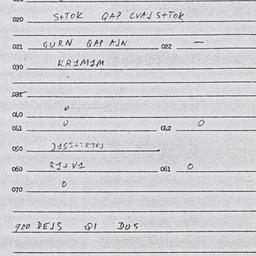 020 S+TOK QAP CVAJ S+TOK
021 GURN QAP AJN 022 —
030 KR1M1M
031
040 0
041 0 042 0
050
060 R1+V1 061 0
070 0
900 DEJS QI DUS